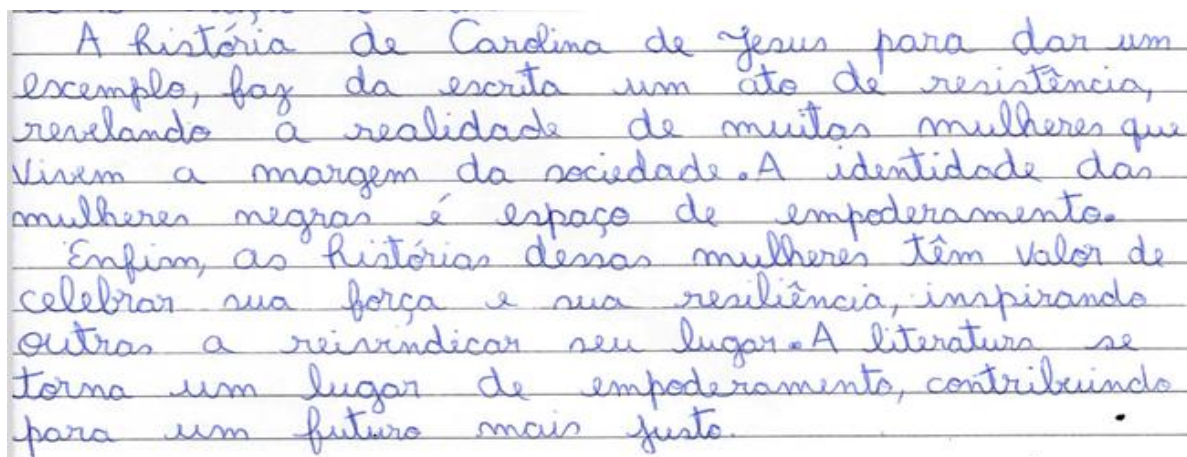 A história de Carolina de Jesus para dar um
excemplo, faz da escrita um ato de resistência,
revelando a realidade de muitas mulheres que
vivem a margem da sociedade. A identidade das
mulheres negras é espaço de empoderamento.
Enfim, as histórias dessas mulheres têm valor de
celebrar sua força e sua resiliência, inspirando
outras a reivindicar seu lugar. A literatura se
torna um lugar de empoderamento, contribuindo
para um futuro mais justo.